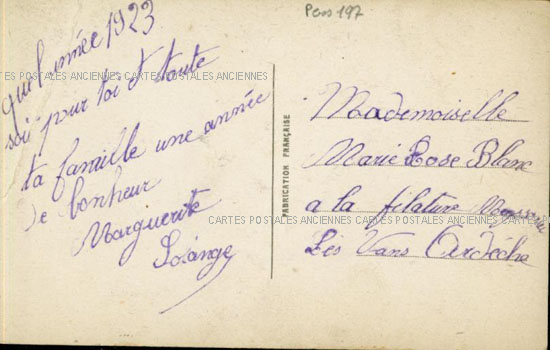 Pers 197
qu'l année 1923
soit pour toi et toute
ta famille une année
de bonheur
Marguerite
Solange
FABRICATION FRANÇAISE
Mademoiselle
Marie Rose Blanc
a la filature
Les Vans Ardèche
CARTES POSTALES ANCIENNES CARTES POSTALES ANCIENNES
CARTES POSTALES ANCIENNES CARTES POSTALES ANCIENNES